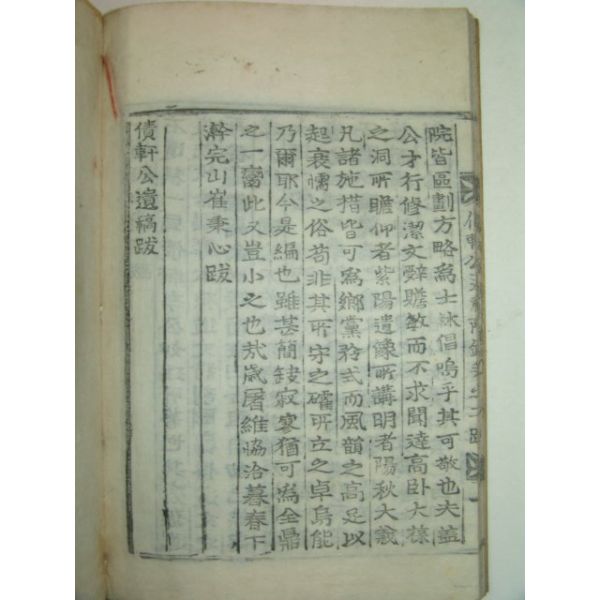 院皆區劃方略爲士林倡嗚乎其可敬也夫益
公才行修潔文辭贍敏而不求聞達高卧大葆
之洞所瞻仰者紫陽遺像所講明者陽秋大義
凡諸施措皆可爲鄉黨矜式而風韻之高足以
起衰懦之俗苟非其所守之確所立之卓烏能
乃爾耶今是編也雖甚簡缺寂寥猶可爲全鼎
之一臠此又豈小之也㢤歲屠維恊洽暮春下
澣完山崔秉心跋
債軒公遺稿跋